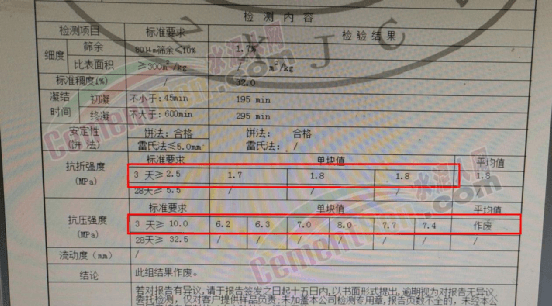 检测内容
检测项目 标准要求 检验结果
细度 筛余 80μm筛余≤10% 1.7%
比表面积 ≥300m²/kg / m²/kg
标准稠度(%) / 32.0
凝结时间 初凝 不小于:45min 195 min
终凝 不大于:600min 295 min
安定性 饼法:合格 饼法: 合格
雷氏法≤5.0mm 雷氏法: /
抗折强度(MPa) 标准要求 单块值 平均值
3 天≥2.5 1.7 1.8 1.8 1.8
28天≥5.5 / / / /
抗压强度(MPa) 标准要求 单块值 平均值
3 天≥10.0 6.2 6.3 7.0 8.0 7.1 7.4 作废
28天≥32.5 / / / / / / /
流动度(mm) / /
结论 此组结果作废。
若对报告有异议,请于报告签发之日起十五日内,以书面形式提出,逾期视为对报告无异议
委托检测,仅对客户提供样品负责,未加盖本公司检测专用章,报告页数不全的,未经本公
水泥人网
CementRen.com